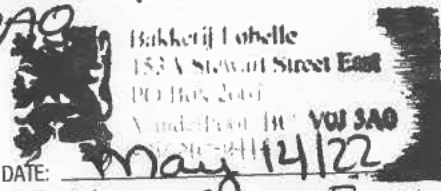 3A0
Bakkerij Lobelle
153 A Stewart Street East
PO Box
Vanderhoof, BC V0J 3A0
DATE: May 14/22